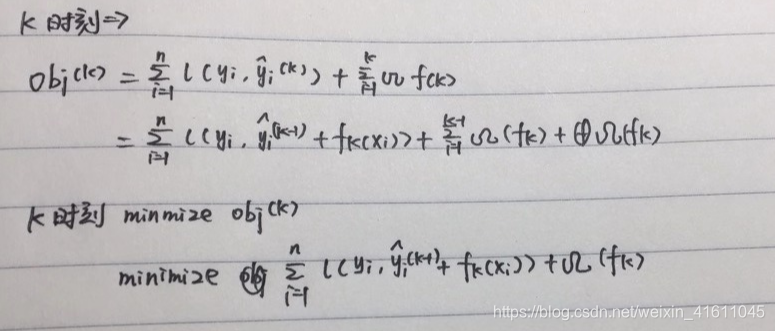 k时刻=>
obj^(k) = Σ_{i=1}^{n} l(yi, ŷi^(k)) + Σ_{i=1}^{k} Ω f(k)
= Σ_{i=1}^{n} l(yi, ŷi^(k-1) + fk(xi)) + Σ_{i=1}^{k-1} Ω(fk) + Ω(fk)
k时刻 minmize obj^(k)
minimize Σ_{i=1}^{n} l(yi, ŷi^(k-1) + fk(xi)) + Ω(fk)
https://blog.csdn.net/weixin_41611045